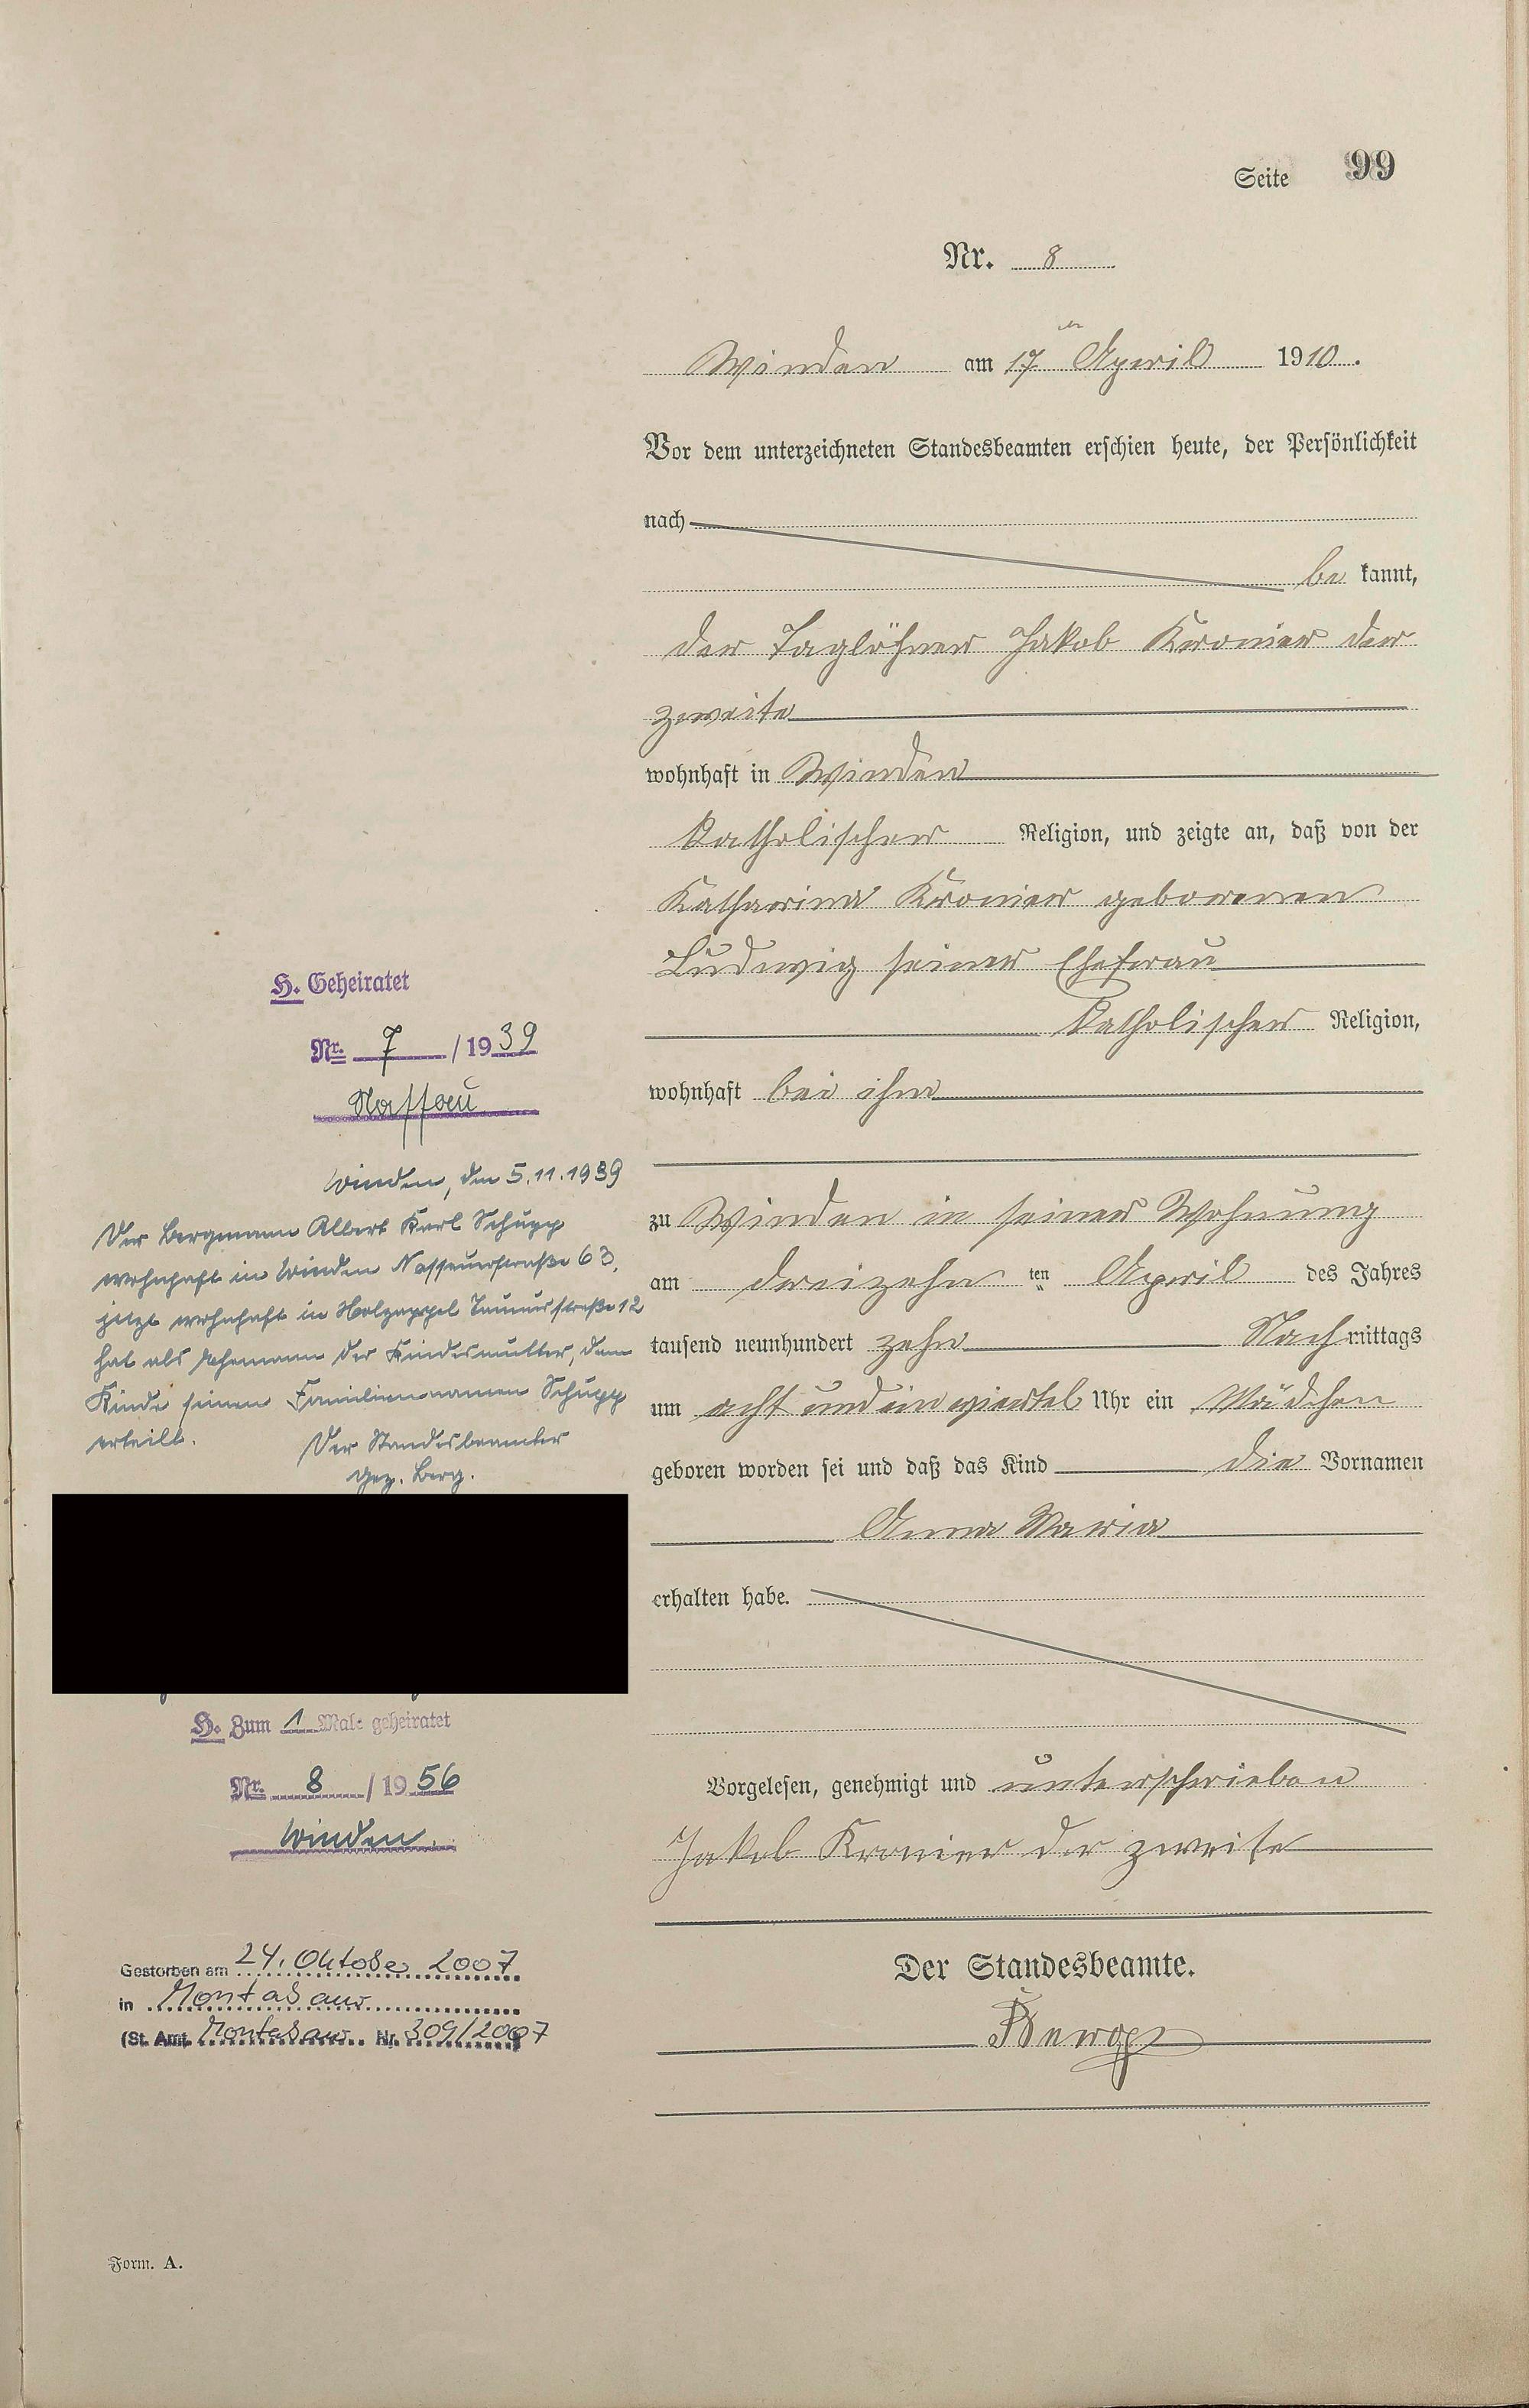 Seite 99
Nr. 8
Winden am 17ten April 1910.
Vor dem unterzeichneten Standesbeamten erschien heute, der Persönlichkeit
nach
be kannt,
der Taglöhner Jakob Kronier der
zweite
wohnhaft in Winden
katholischer Religion, und zeigte an, daß von der
Katharina Kronier geborenen
Ludwig seiner Ehefrau
katholischer Religion,
wohnhaft bei ihm
zu Winden in seiner Wohnung
am dreizehn ten April des Jahres
tausend neunhundert zehn Nach mittags
um acht und ein viertel Uhr ein Mädchen
geboren worden sei und daß das Kind die Vornamen
Anna Maria
erhalten habe.
Vorgelesen, genehmigt und unterschrieben
Jakob Kronier der zweite
Der Standesbeamte.
H. Geheiratet
Nr. 7 / 1939
Nassau
Winden, den 5.11.1939
Der Bergmann Albert Karl Schupp
wohnhaft in Winden Nassauerstraße 63,
jetzt wohnhaft in Holzappel Taunusstraße 12
hat als Ehemann der Kindesmutter, dem
Kinde seinen Familiennamen Schupp
erteilt.
Der Standesbeamter
gez. Berg.
H. Zum 1 Male geheiratet
Nr. 8 / 1956
Winden.
Gestorben am 24. Oktober 2007
in Montabaur
(St. Amt. Montabaur Nr. 309/2007
Form. A.